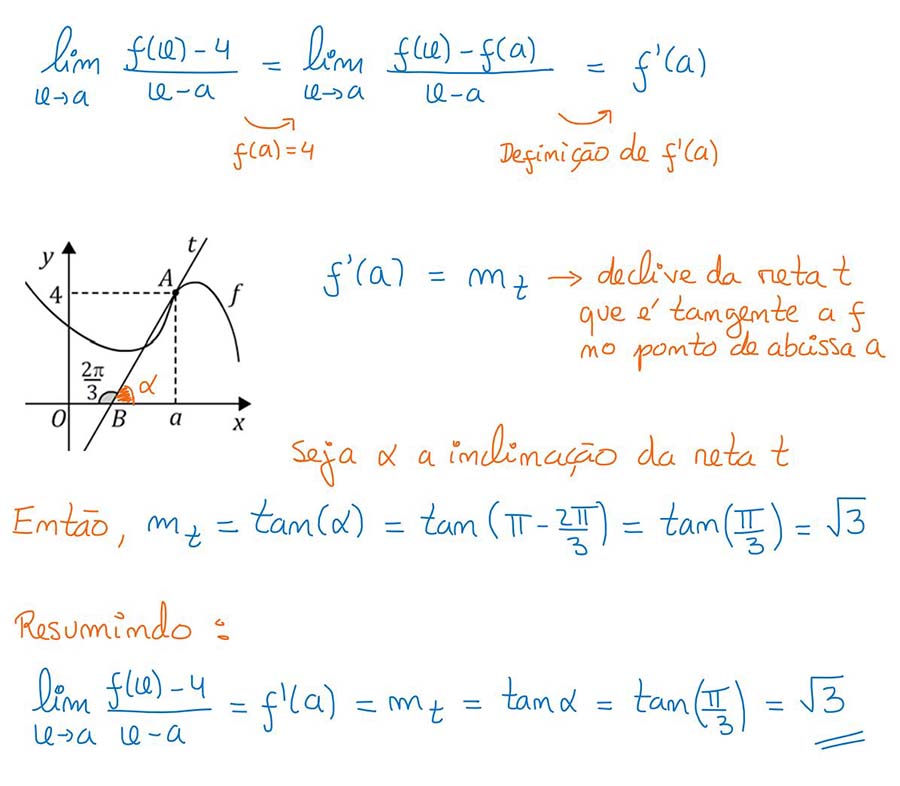 lim f(x) - 4 / x - a = lim f(x) - f(a) / x - a = f'(a)
x→a x→a
f(a) = 4
Definição de f'(a)
y
t
A
f
4
2π/3
α
O
B
a
x
f'(a) = m_t → declive da reta t
que é tangente a f
no ponto de abcissa a
Seja α a inclinação da reta t
Então, m_t = tan(α) = tan(π - 2π/3) = tan(π/3) = √3
Resumindo :
lim f(x) - 4 / x - a = f'(a) = m_t = tan α = tan(π/3) = √3
x→a